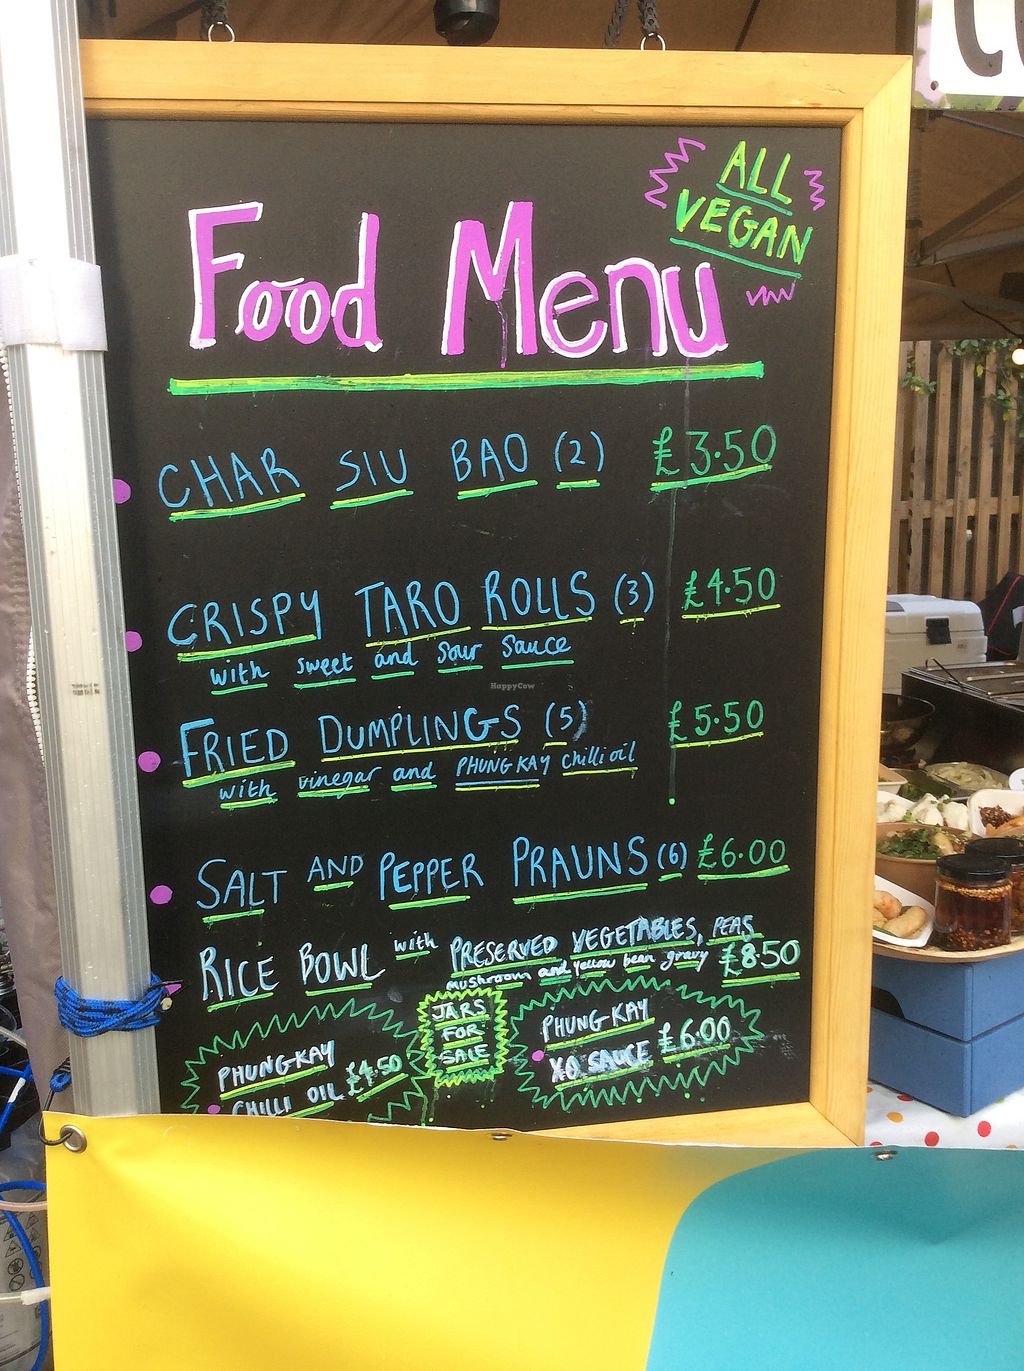 ALL
VEGAN
Food Menu
CHAR SIU BAO (2) £3.50
CRISPY TARO ROLLS (3) £4.50
with sweet and sour sauce
HappyCow
FRIED DUMPLINGS (5) £5.50
with vinegar and PHUNG KAY chilli oil
SALT AND PEPPER PRAUNS (6) £6.00
RICE BOWL with PRESERVED VEGETABLES, PEAS
mushroom and yellow bean gravy £8.50
JARS
FOR
SALE
PHUNG KAY
CHILLI OIL £4.50
PHUNG KAY
XO SAUCE £6.00